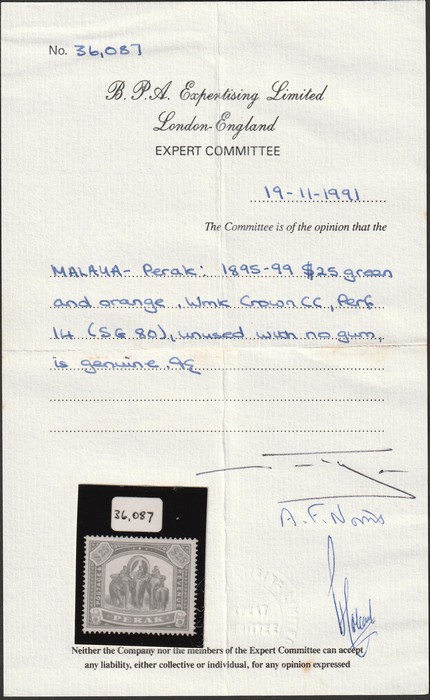 No. 36,087
B.P.A. Expertising Limited
London-England
EXPERT COMMITTEE
19-11-1991
The Committee is of the opinion that the
MALAYA- Perak: 1895-99 $25 green
and orange, Wmk Crown CC, Perf
14 (SG 80), unused with no gum,
is genuine.
36,087
A.F. Norris
PERAK
Neither the Company nor the members of the Expert Committee can accept
any liability, either collective or individual, for any opinion expressed